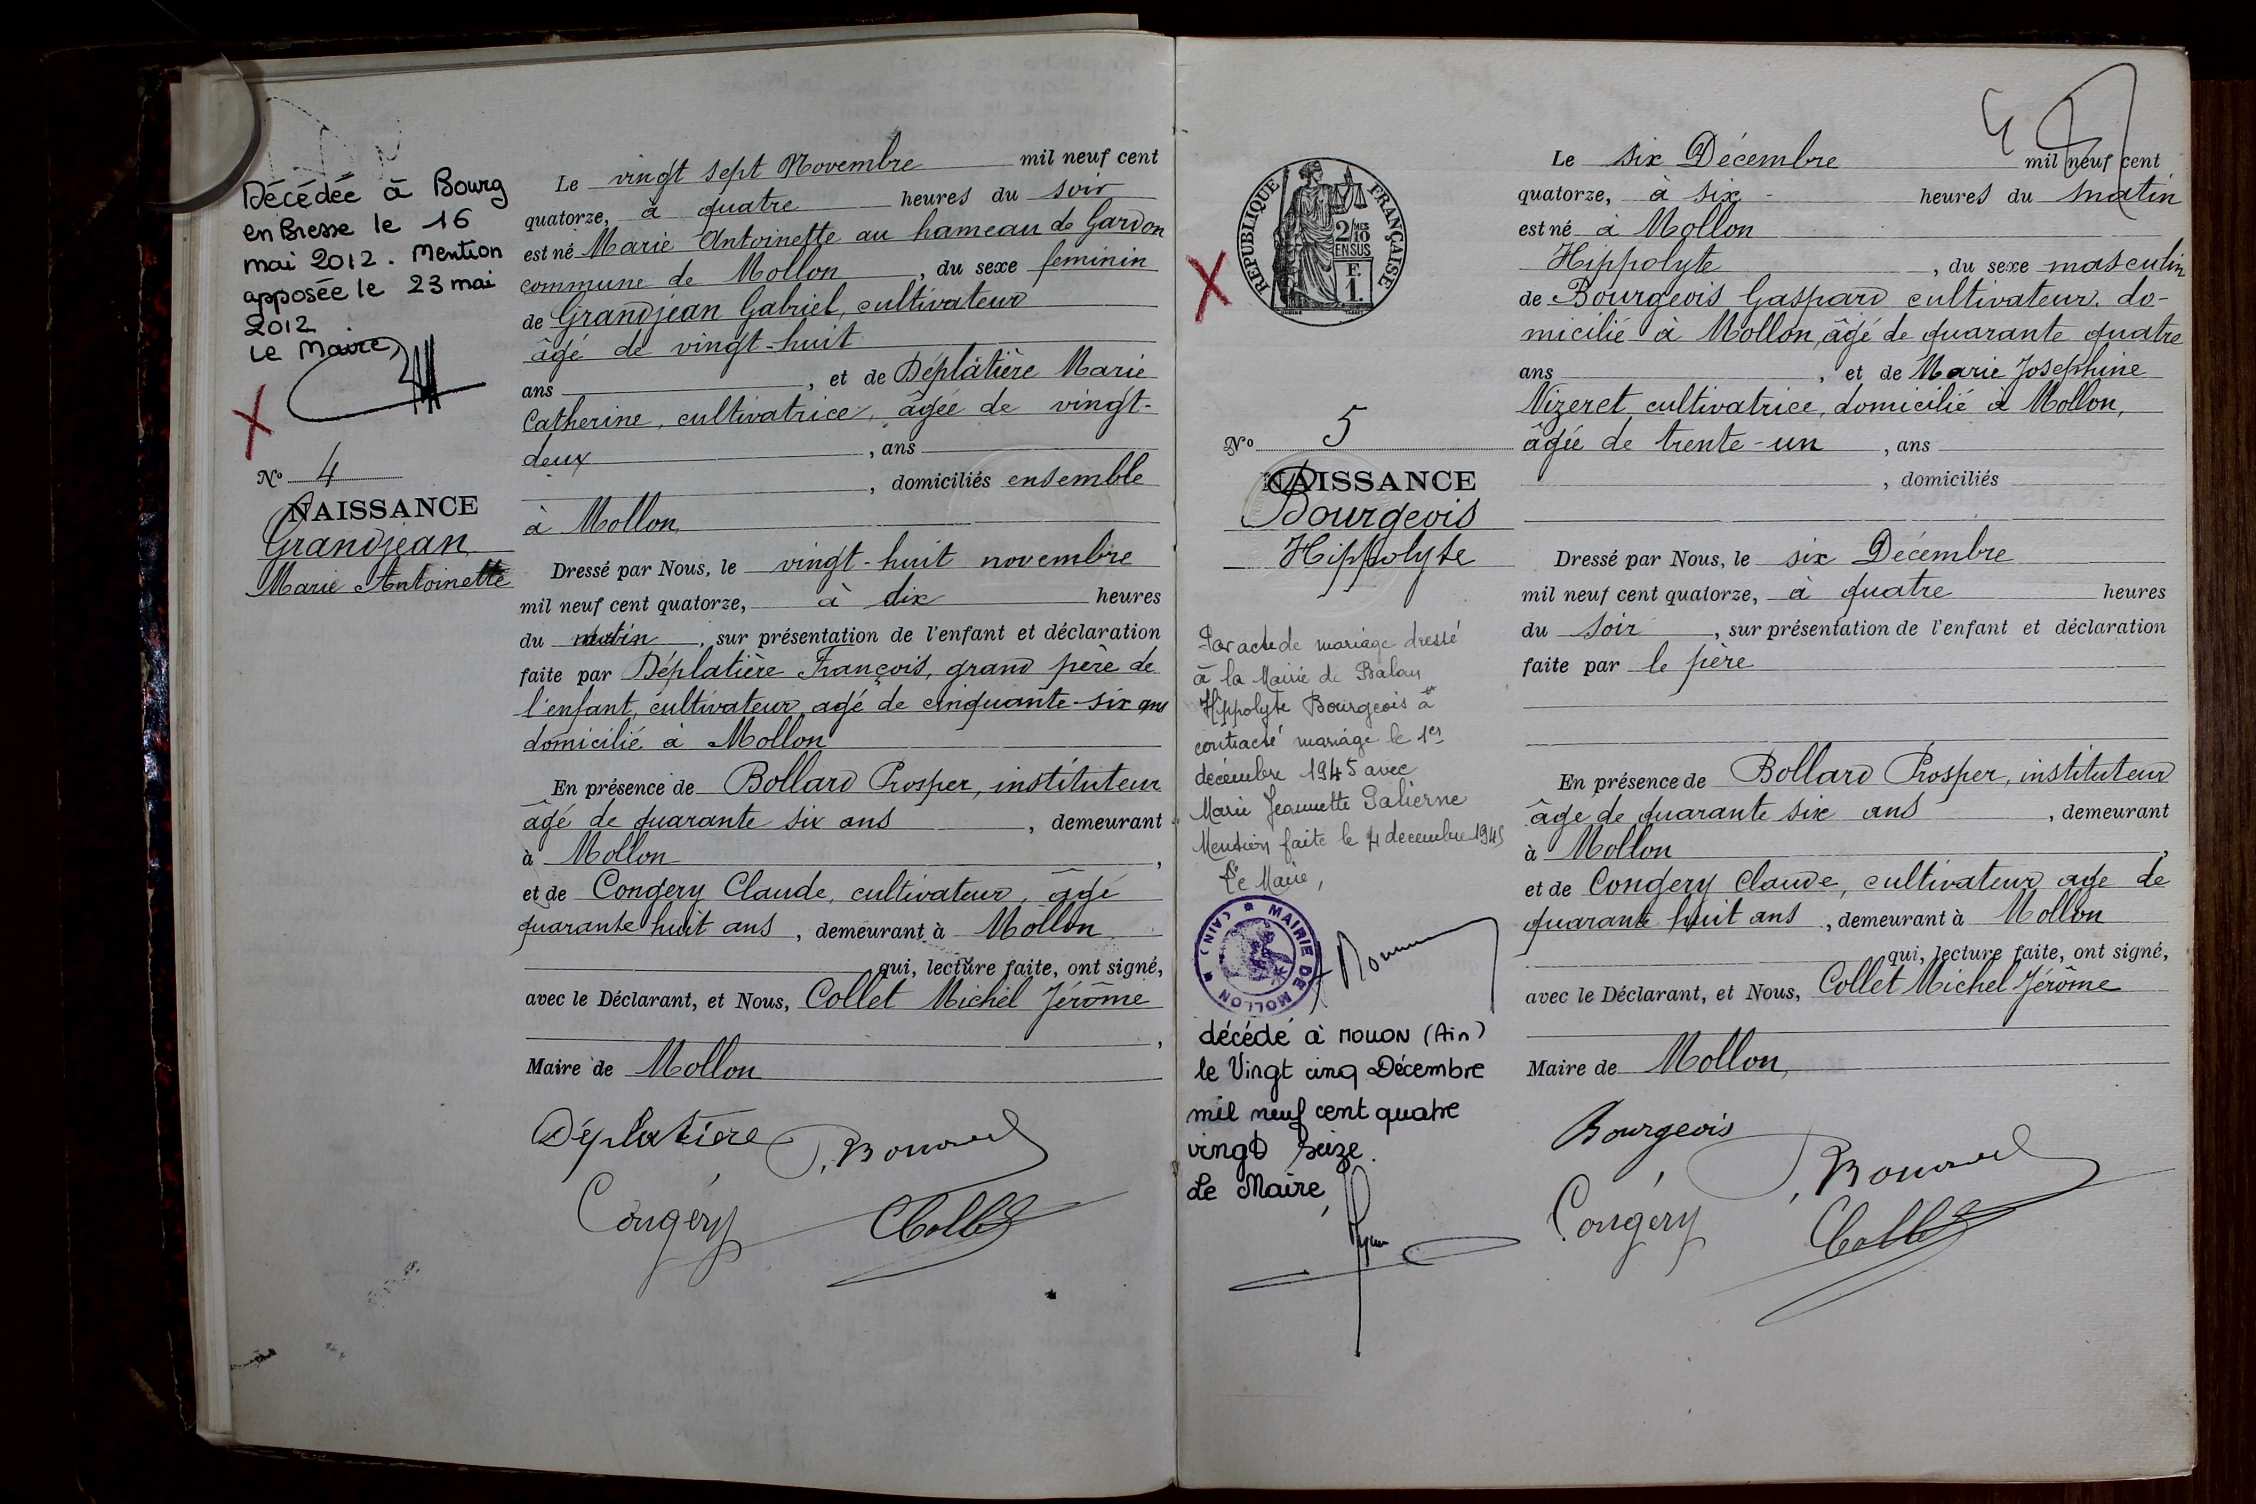 Décédée à Bourg
en Bresse le 16
mai 2012. Mention
apposée le 23 mai
2012.
Le Maire,
N° 4
NAISSANCE
Grandjean
Marie Antoinette
Le vingt sept Novembre mil neuf cent
quatorze, à quatre heures du soir
est né Marie Antoinette au hameau de Gardon
commune de Mollon, du sexe feminin
de Grandjean Gabriel, cultivateur
âgé de vingt-huit
ans, et de Déplâtière Marie
Catherine, cultivatrice, âgée de vingt-
deux, ans
, domiciliés ensemble
à Mollon
Dressé par Nous, le vingt-huit novembre
mil neuf cent quatorze, à dix heures
du matin, sur présentation de l'enfant et déclaration
faite par Déplatière François, grand père de
l'enfant, cultivateur agé de cinquante-six ans
domicilié à Mollon
En présence de Bollard Prosper, instituteur
âgé de quarante six ans, demeurant
à Mollon,
et de Congery Claude, cultivateur, âgé
quarante huit ans, demeurant à Mollon
qui, lecture faite, ont signé,
avec le Déclarant, et Nous, Collet Michel Jérôme
,
Maire de Mollon
Déplatière
Congéry Collet
RÉPUBLIQUE FRANÇAISE
2/10 MES
EN SUS
F.
1.
N° 5
NAISSANCE
Bourgeois
Hippolyte
Par acte de mariage dressé
à la Mairie de Balan
Hippolyte Bourgeois a
contracté mariage le 1er
décembre 1945 avec
Marie Jeannette Palierne
Mention faite le 4 decembre 1945
Le Maire,
MAIRIE DE MOLLON (AIN)
décédé à MOLLON (Ain)
le Vingt cinq Décembre
mil neuf cent quatre
vingt seize.
Le Maire,
Le six Décembre mil neuf cent
quatorze, à six heures du matin
est né à Mollon
Hippolyte, du sexe masculin
de Bourgeois Gaspard cultivateur, do-
micilié à Mollon, âgé de quarante quatre
ans, et de Marie Josephine
Nizeret, cultivatrice, domicilié à Mollon,
âgée de trente-un, ans
, domiciliés
Dressé par Nous, le six Décembre
mil neuf cent quatorze, à quatre heures
du soir, sur présentation de l'enfant et déclaration
faite par le père
En présence de Bollard Prosper, instituteur
âge de quarante six ans, demeurant
à Mollon,
et de Congery Claude, cultivateur age de
quarante huit ans, demeurant à Mollon
qui, lecture faite, ont signé,
avec le Déclarant, et Nous, Collet Michel Jérôme
Maire de Mollon,
Bourgeois
Congéry Collet